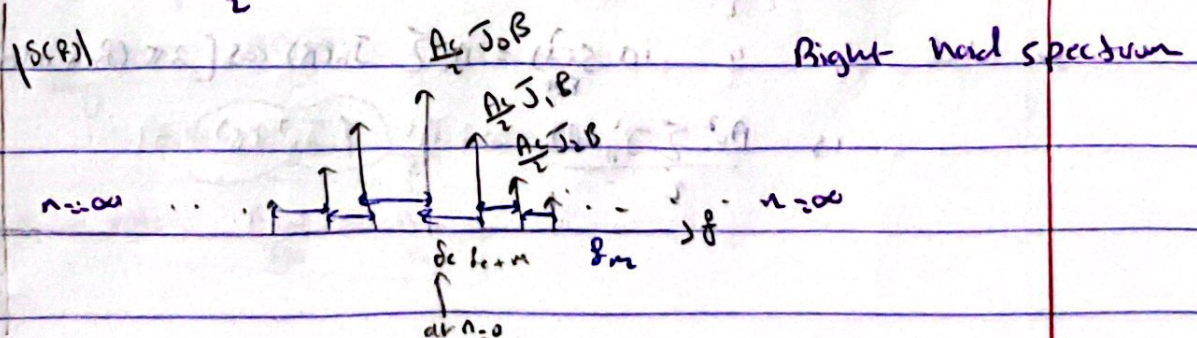 2
|S(f)|
Ac/2 J₀β
Right hand spectrum
Ac/2 J₁β
Ac/2 J₂β
n=∞ . . .
. . - . n=∞
f
fc fc+m fm
at n=0